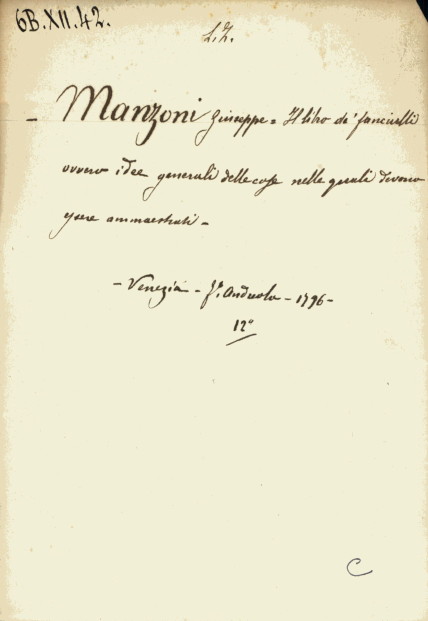 6B.XII.42.
L.Z.
- Manzoni Giuseppe = Il libro de' fanciulli
ovvero idee generali delle cose nelle quali devono
essere ammaestrati -
- Venezia - Fr. Andreola - 1796 -
12°
C